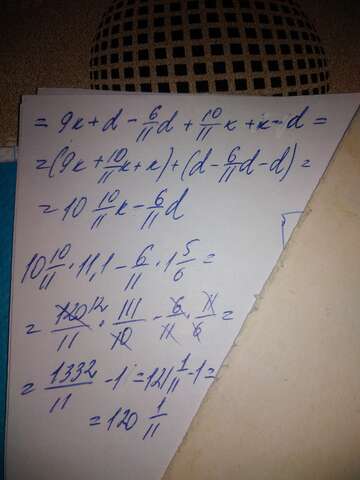 = 9к + d - 6/11 d + 10/11 к + к - d =
= (9к + 10/11 к + к) + (d - 6/11 d - d) =
= 10 10/11 к - 6/11 d
10 10/11 · 11,1 - 6/11 · 1 5/6 =
= 120 12/11 · 111/10 - 6/11 · 11/6 =
= 1332/11 - 1 = 121 1/11 - 1 =
= 120 1/11